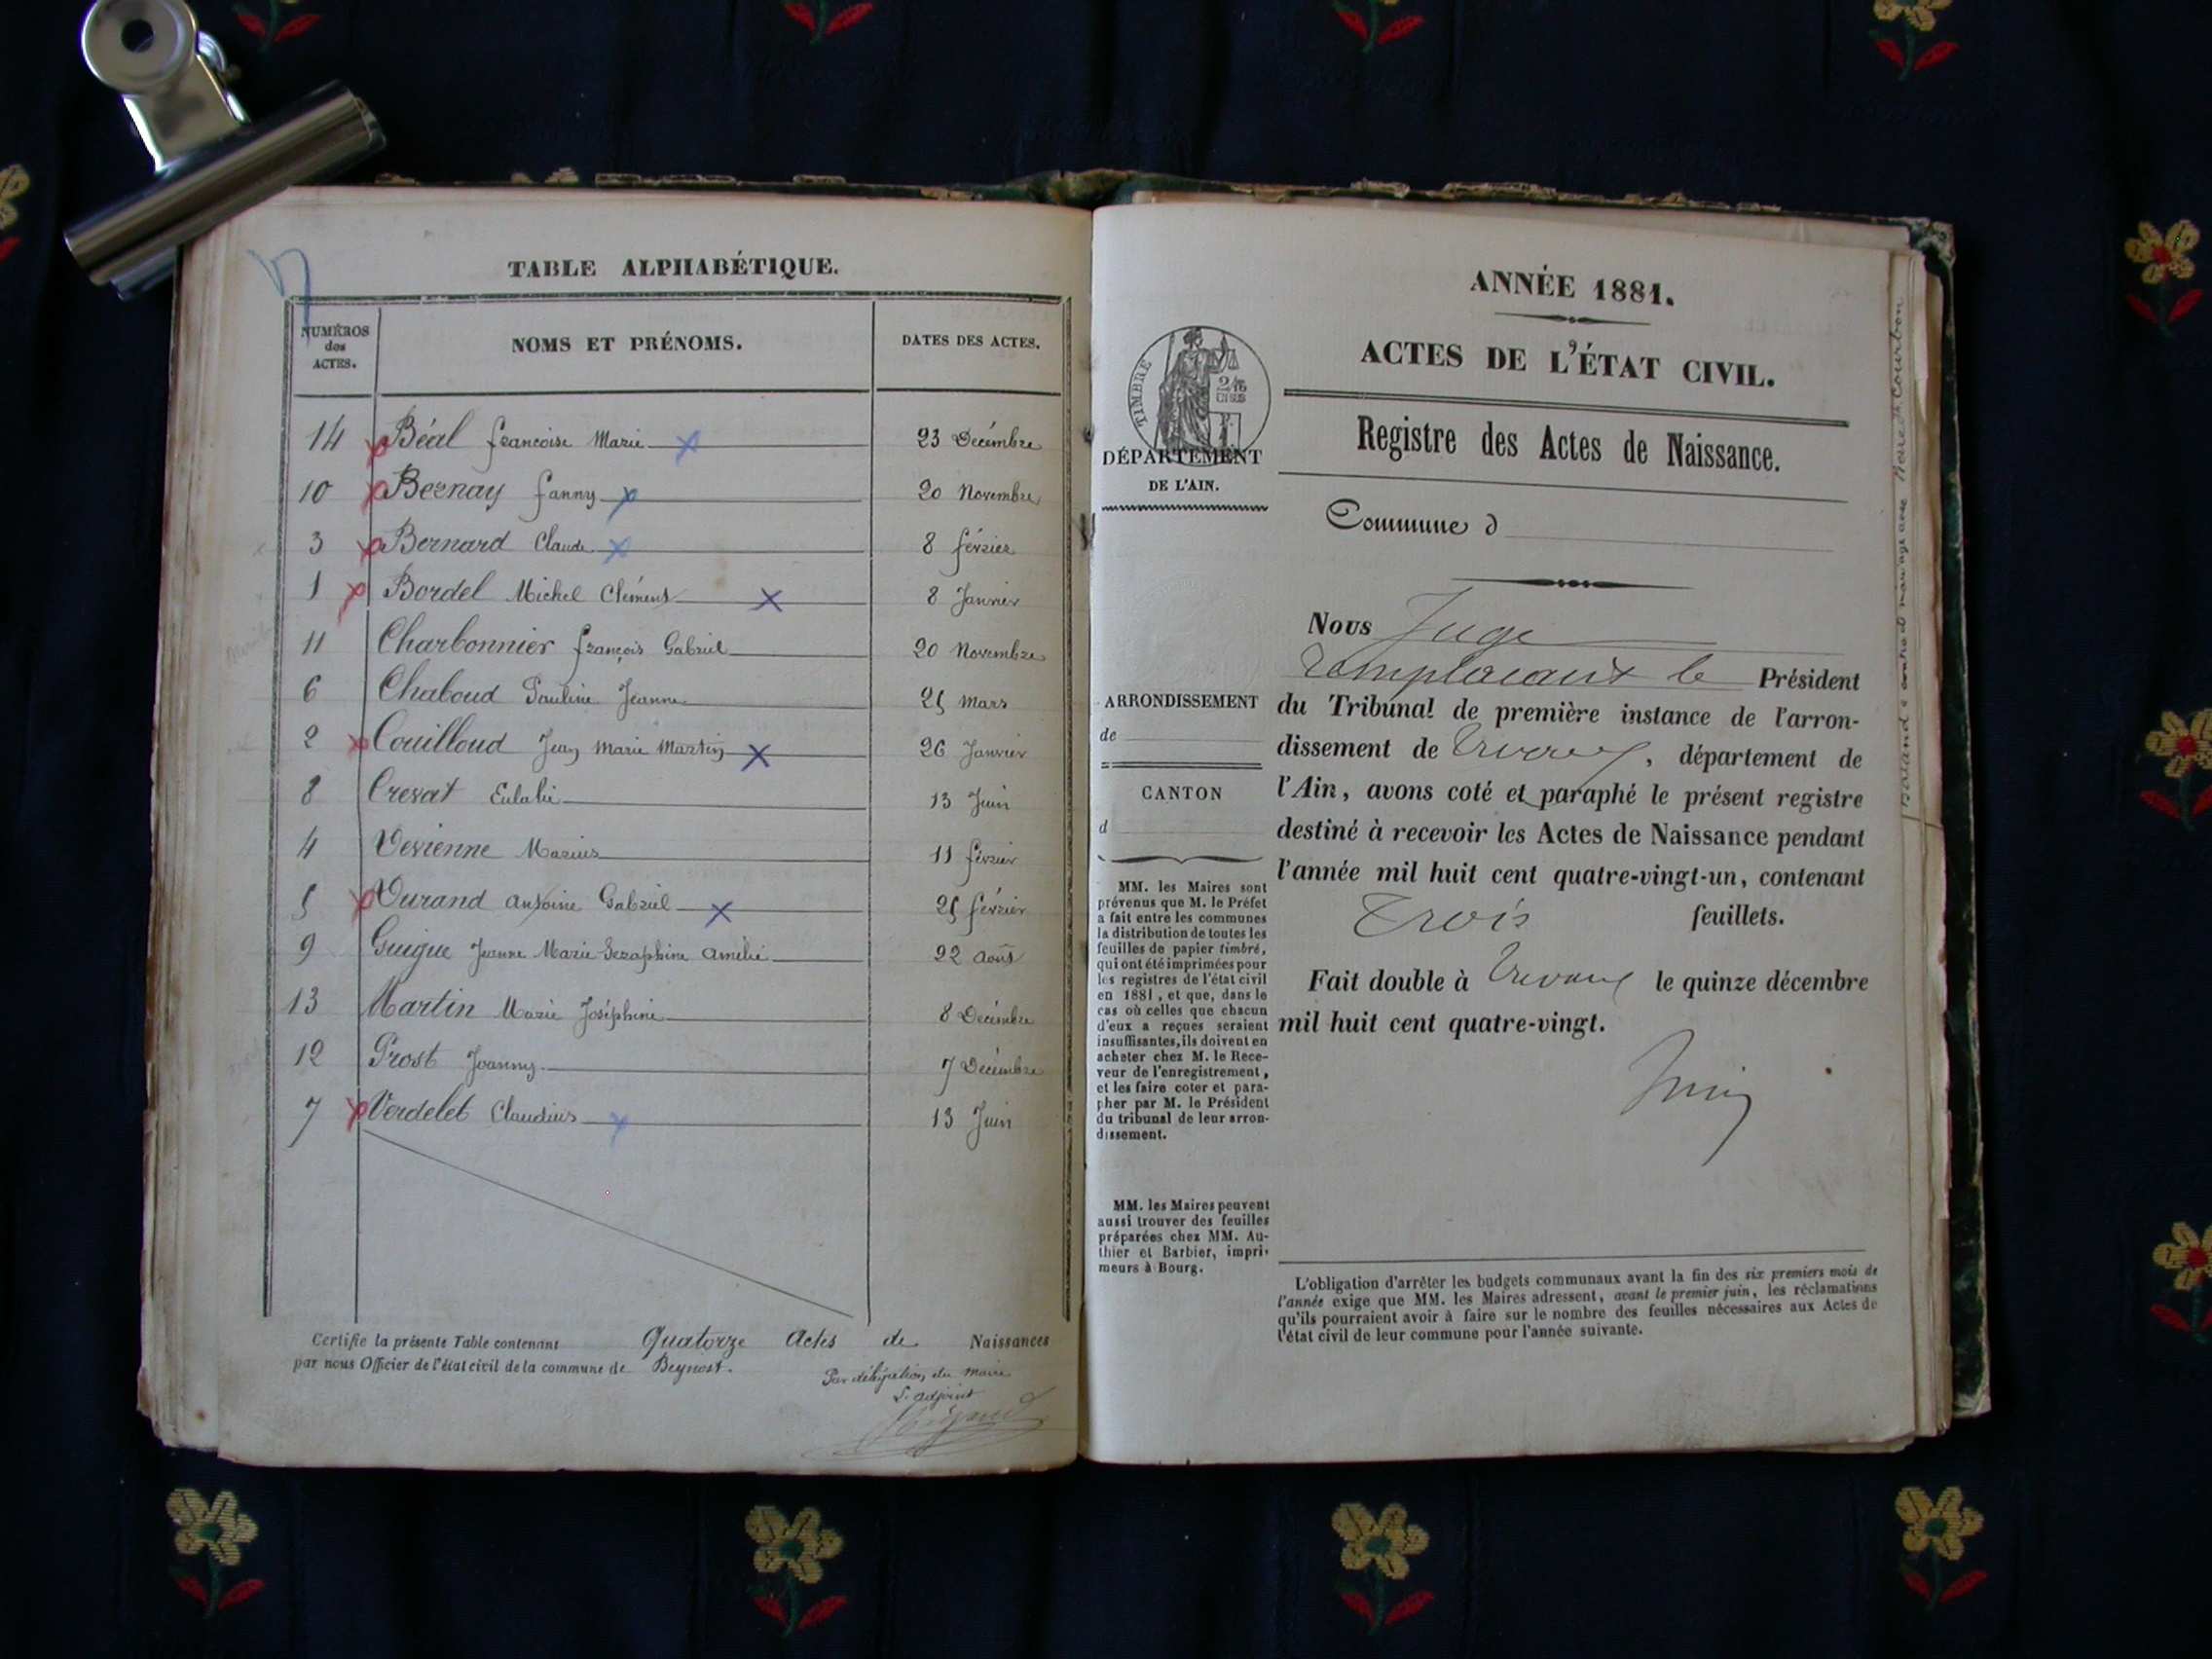 TABLE ALPHABÉTIQUE.
NUMÉROS
des
ACTES.
NOMS ET PRÉNOMS.
DATES DES ACTES.
14 Béal françoise Marie 23 Décembre
10 Bernay fanny 20 Novembre
3 Bernard Claude 8 février
1 Bordel Michel Clément 8 Janvier
11 Charbonnier françois Gabriel 20 Novembre
6 Chaboud Pauline Jeanne 25 Mars
2 Couilloud Jean Marie Martin 26 Janvier
8 Crevat Eulalie 13 Juin
4 Devienne Marius 11 février
5 Durand antoine Gabriel 25 février
9 Guigue Jeanne Marie Seraphine amélie 22 août
13 Martin Marie Joséphine 8 Décembre
12 Prost Joanny 7 Décembre
7 Verdelet Claudius 13 Juin
Certifié la présente Table contenant Quatorze Actes de Naissances
par nous Officier de l'état civil de la commune de Beynost.
Par délégation du maire
L'adjoint
ANNÉE 1881.
ACTES DE L'ÉTAT CIVIL.
TIMBRE
DÉPARTEMENT
DE L'AIN.
Registre des Actes de Naissance.
Commune d
Nous Juge
remplacant le Président
du Tribunal de première instance de l'arron-
dissement de Trévoux, département de
l'Ain, avons coté et paraphé le présent registre
destiné à recevoir les Actes de Naissance pendant
l'année mil huit cent quatre-vingt-un, contenant
Trois feuillets.
Fait double à Trévoux le quinze décembre
mil huit cent quatre-vingt.
ARRONDISSEMENT
de
CANTON
d
MM. les Maires sont
prévenus que M. le Préfet
a fait entre les communes
la distribution de toutes les
feuilles de papier timbré,
qui ont été imprimées pour
les registres de l'état civil
en 1881, et que, dans le
cas où celles que chacun
d'eux a reçues seraient
insuffisantes, ils doivent en
acheter chez M. le Rece-
veur de l'enregistrement,
et les faire coter et para-
pher par M. le Président
du tribunal de leur arron-
dissement.
MM. les Maires peuvent
aussi trouver des feuilles
préparées chez MM. Au-
thier et Barbier, impri-
meurs à Bourg.
L'obligation d'arrêter les budgets communaux avant la fin des six premiers mois de
l'année exige que MM. les Maires adressent, avant le premier juin, les réclamations
qu'ils pourraient avoir à faire sur le nombre des feuilles nécessaires aux Actes de
l'état civil de leur commune pour l'année suivante.